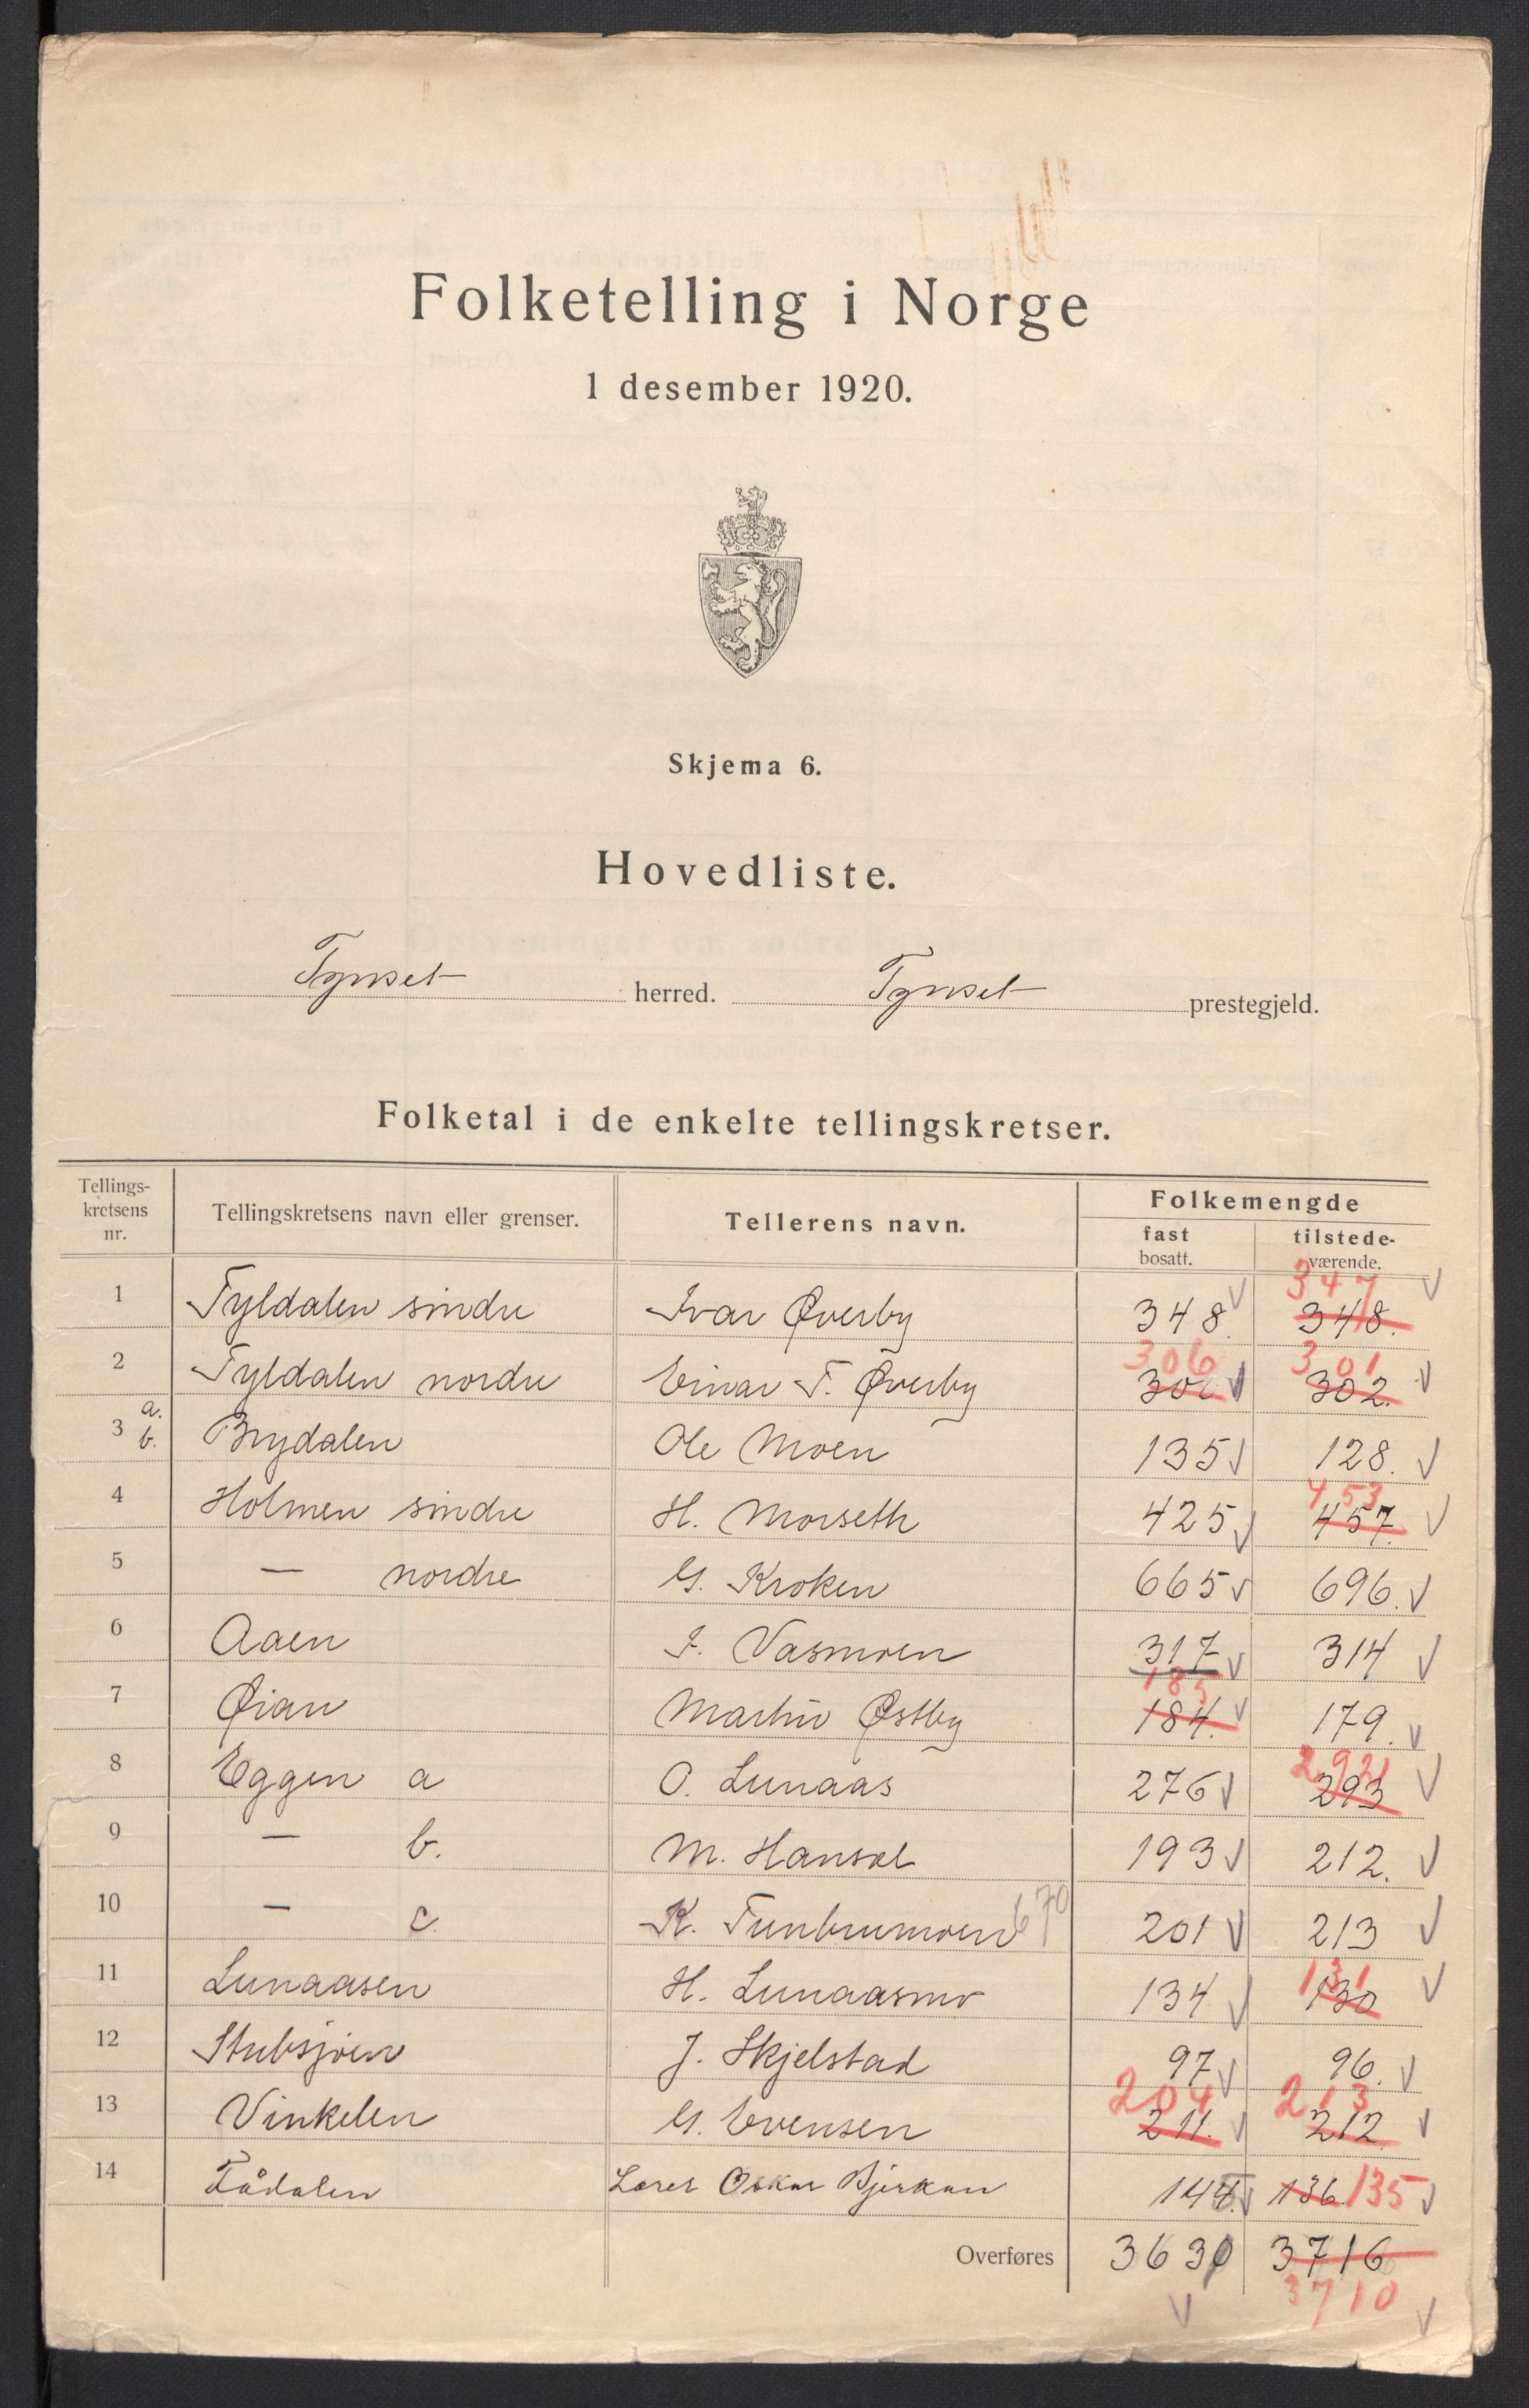 Folketelling i Norge
1 desember 1920.
Skjema 6.
Hovedliste.
Tynset herred. Tynset prestegjeld.
Folketal i de enkelte tellingskretser.
Tellings-
kretsens
nr.
Tellingskretsens navn eller grenser.
Tellerens navn.
Folkemengde
fast
bosatt.
tilstede-
værende.
347
1 Tyldalen sindre Ivar Øverby 348. 348.
306 301
2 Tyldalen nordre Einar T. Øverby 302.
3 a. b. Brydalen Ole Moen 135 128.
453
4 Holmen sindre H. Morseth 425 457.
5 — nordre G. Kroken 665 696.
6 Aaen I. Vasmoen 317 314
185
7 Øian Martin Østby 184. 179.
292
8 Eggen a O. Lunaas 276 293
9 — b. M. Hansæl 193 212.
10 — c. K. Tunbrumoen 670 201 213
131
11 Lunaasen H. Lunaasmo 134 130
12 Stubsjøen J. Skjelstad 97 96.
204 213
13 Vinkelen G. Evensen 211. 212.
14 Fådalen Lærer Oskar Bjørkan 144. 136. 135
Overføres 3630 3716
3710